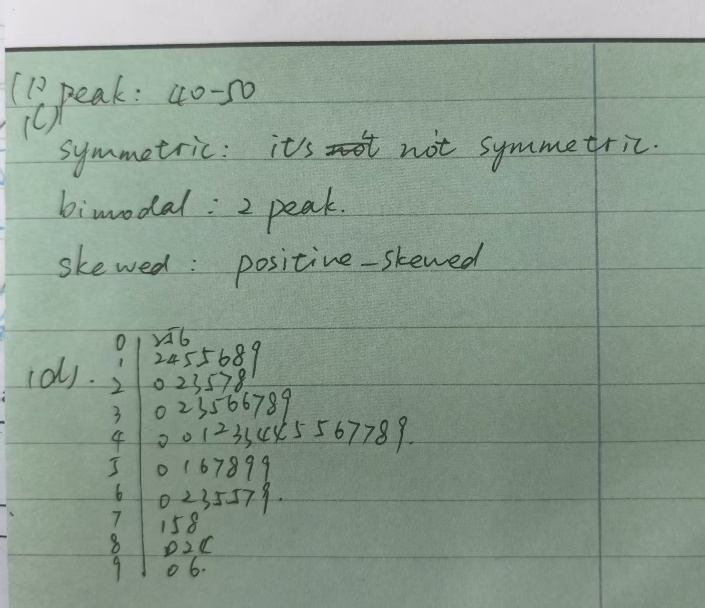 (1) peak: 40-50
(C)
symmetric: it's not not symmetric.
bimodal: 2 peak.
skewed: positive-skewed
(d).
0 | 256
1 | 2455689
2 | 023578
3 | 023566789
4 | 0012334445567789.
5 | 0167899
6 | 0235579.
7 | 158
8 | 02
9 | 06.